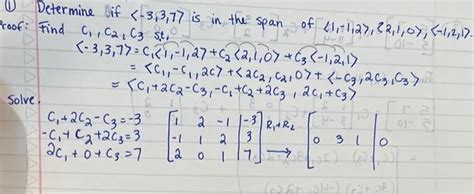 ① Determine if <-3,3,7> is in the span of <1,-1,2>, <2,1,0>, <-1,2,1>.
Proof: Find c₁, c₂, c₃ st.
<-3,3,7> = c₁<1,-1,2> + c₂<2,1,0> + c₃<-1,2,1>
= <c₁, -c₁, 2c₁> + <2c₂, c₂, 0> + <-c₃, 2c₃, c₃>
= <c₁+2c₂-c₃, -c₁+c₂+2c₃, 2c₁+c₃>
Solve.
c₁+2c₂-c₃=-3 [1 2 -1 | -3] R₁+R₂ [ | ]
-c₁+c₂+2c₃=3 [-1 1 2 | 3] → [0 3 1 | 0]
2c₁+0+c₃=7 [2 0 1 | 7] [ | ]